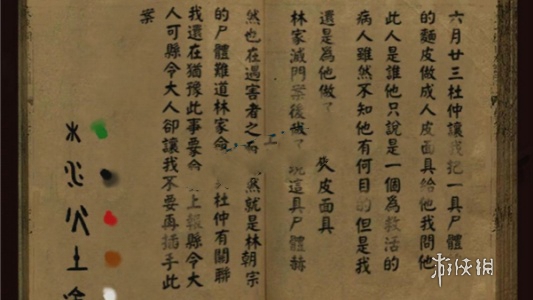 六月廿三杜仲讓我把一具尸體
的麵皮做成人皮面具給他我問他
此人是誰他只說是一個為救活的
病人雖然不知他有何目的但是我
還是為他做了 皮面具
林家滅門案後我 現這具尸體赫
然也在遇害者之 然就是林朝宗
的尸體難道林家命 杜仲有關聯
我還在猶豫此事要 上報縣令大
人可縣令大人卻讓我不要再插手此
案
木
水
火
土
金
游侠網